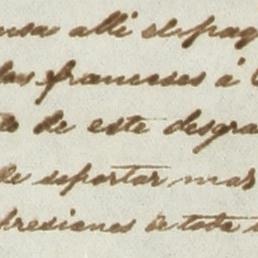 alli el pag
las franceses á
de este desgra
de soportar mas
presiones de toda